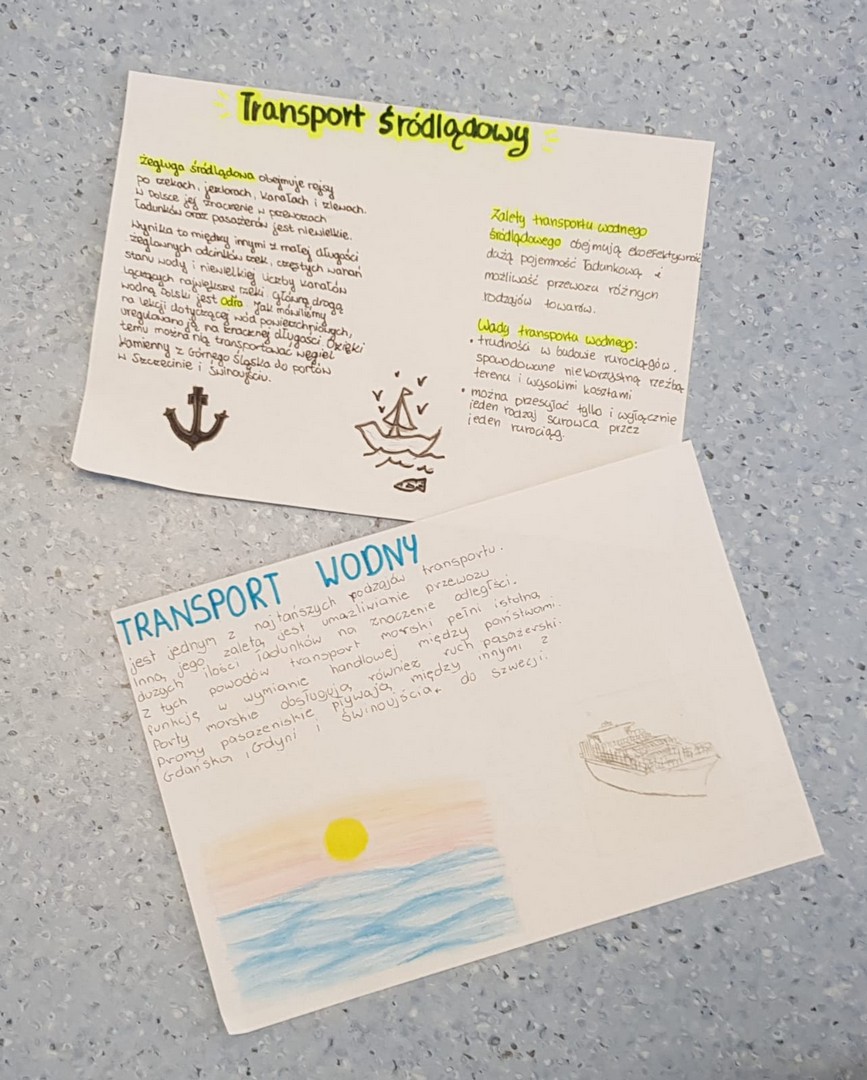 Transport śródlądowy
żegluga śródlądowa obejmuje rejsy
po rzekach, jeziorach, kanałach i zlewach.
W Polsce jej znaczenie w przewozach
ładunków oraz pasażerów jest niewielkie.
Wynika to między innymi z małej długości
żeglownych odcinków rzek, częstych wahań
stanu wody i niewielkiej liczby kanałów
łączących największe rzeki. główną drogą
wodną Polski jest Odra. Jak mówiliśmy
na lekcji dotyczącej wód powierzchniowych,
uregulowano ją na znacznej długości. Dzięki
temu można nią transportować węgiel
kamienny z Górnego Śląska do portów
w Szczecinie i Świnoujściu.
Zalety transportu wodnego
śródlądowego obejmują ekoefektywność
dużą pojemność ładunkową i
możliwość przewozu różnych
rodzajów towarów.
Wady transportu wodnego:
• trudności w budowie rurociągów.
spowodowane niekorzystną rzeźbą
terenu i wysokimi kosztami
• można przesyłać tylko i wyłącznie
jeden rodzaj surowca przez
jeden rurociąg.
TRANSPORT WODNY
jest jednym z najtańszych podzajów transportu.
Inną jego zaletą jest umażliwianie przewozu
dużych ilości ładunków na znaczenie odległści.
Z tych powodów transport morski pełni istotną
funkcję w wymianie handlowej między państwami.
Porty morskie obsługują również ruch pasażerski.
Promy pasażeniskie pływają między innymi z
Gdańska, Gdyni i Świnoujścia do Szwecji.